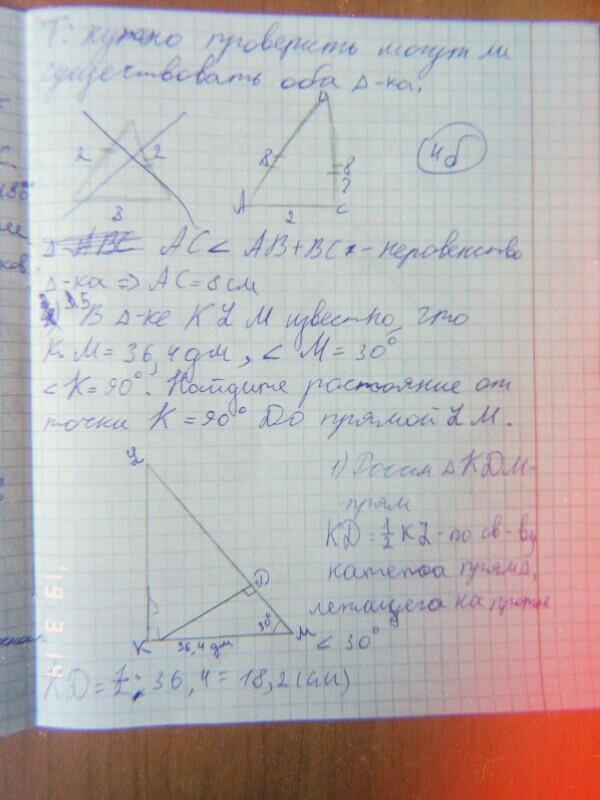 Т: нужно проверить могут ли
существовать оба Δ-ка.
2
2
8
8
8
?
A
2
C
4б
Δ AC < AB+BC - неровенство
Δ-ка => AC=8см
В Δ-ке KLM известно, что
KM = 36,4 дм, < M = 30°
< K = 90°. Найдите растояние от
точки K = 90° До прямой LM.
L
1) Рассм Δ KDM-
прям
KD = 1/2 KL - по св-ву
катета прям Δ,
лежащего на против
< 30°
D
30°
K
36,4 дм
M
KD = 1/2 : 36,4 = 18,2 (см)
19 3 '14